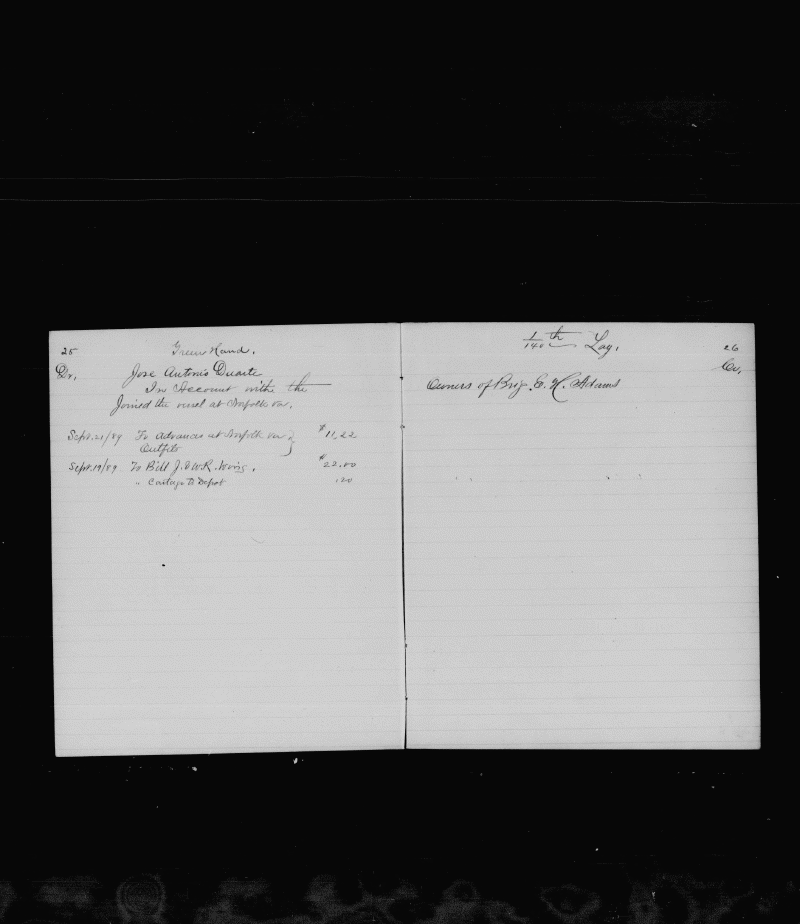 25 Green Hand.
Dr. Jose Antonio Duarte
In Account with the
Joined the vessel at Norfolk Va.
Sept. 21/89 To Advances at Norfolk Va } $11,22
Outfits
Sept. 19/89 To Bill J. & W.R. Wing. $22.00
" Cartage to Depot .20
1/140 th Lay. 26
Cr.
Owners of Brig. E. H. Adams